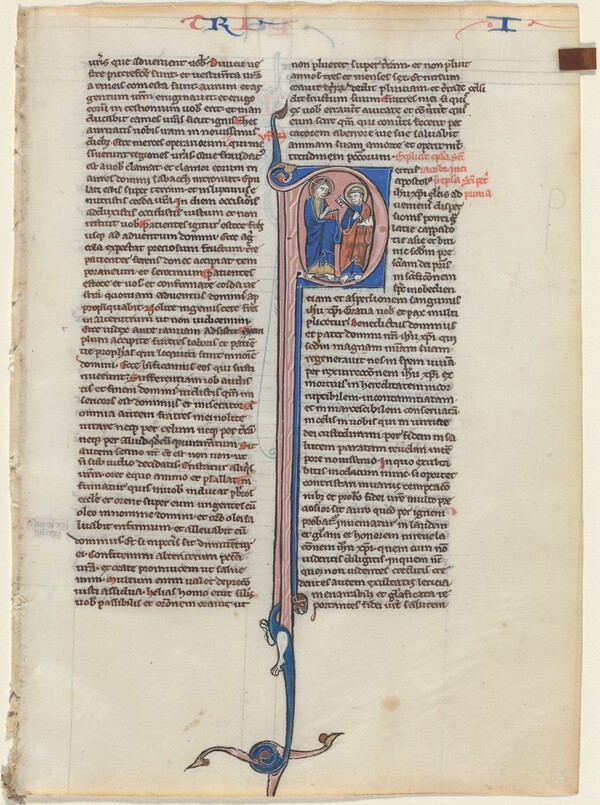 TRI I
uris que aduenient uob. Diuicie ue
stre putrefacte sunt. et uestimta ura
a tineis comesta sunt. aurum et ar
gentum urm eruginauit. et erugo
eorum in testimonium uob erit. et man
ducabit carnes uras sicut ignis. Thes
aurizatis uobis iram in nouissimis
dieb. Ecce merces operariorum qui me
ssuerunt regiones uras que fraudata
est a uob clamat. et clamor eorum in
aures domini sabaoth introiuit. Epu
lati estis super terram. et in luxuriis e
nutristis corda ura. In diem occisionis
adduxistis occidistis iustum et non
restitit uob. Patientes igitur estote fres
usqe ad aduentum domini. Ecce agri
cola expectat preciosum fructum tre
patienter ferens donec accipiat tem
poraneum et serotinum. Patientes
estote et uos et confirmate corda ue
stra. quoniam aduentus domini ap
propinquabit. Nolite ingemiscere fres
in alterutrum ut non iudicemini.
Ecce iudex ante ianuam adsistit. Exem
plum accipite fratres laboris et patie
tie prophetas qui locuti sunt in noie
domini. Ecce beatificamus eos qui susti
nuerunt. Sufferentiam iob audis
tis et finem domini uidistis. qm mi
sericors est dominus et miserator. A
omnia autem fratres mei nolite
iurare neqe per celum neqe per tram
neqe per aliud quodcumqe iuramentum. Sit
autem sermo ur est est non non. ut
non sub iudicio decidatis. Tristatur aliqis
urm. oret equo animo et psallat. In
firmatur quis in uob inducat pbros
ecclie et orent super eum unguentes eum
oleo in nomine domini. et oro fidei sal
uabit infirmum et alleuabit eum
dominus. et si in pctis sit dimittetur
ei. Confitemini alterutrum pctа
ura. et orate pro inuicem ut salue
mini. Multum enim ualet deprecо
iusti assidua. helias homo erat silis
nob passibilis et orone orauit ut
non plueret super tram. et non pluit
annos tres et menses sex. et rursum
orauit et dedit pluuiam. et terra
dedit fructum suum. Fratres mei si quis
ex uob errauerit a ueritate et conuerterit quis
eum. scire qm qui conuerti fecerit pec
catorem ab errore uie sue saluabit
animam suam a morte et operit mul
titudinem peccatorum. Explicit epla sci
iacobi. Incipit
epla sci petri
prima
Petrus
apostolus
ihu xpi electis ad
uenis disper
sionis ponti ga
latie cappado
tie asie et biti
nie scdm pre
sciam dei pris
in scificationem
sps in obedien
ciam et aspersionem sanguinis
ihu xpi. Gratia uob et pax multi
plicetur. Benedictus dominus
et pater domini nri ihu xpi qui
scdm magnam miam suam
regenerauit nos in spem uiuam
per resurrectionem ihu xpi ex
mortuis in hereditatem incor
ruptibilem. incontaminatam
et inmarcescibilem conseruatam
in celis in uobis qui in uirtute
dei custodimini per fidem in sa
lutem paratam reuelari in tem
pore nouissimo. In quo exulta
bitis in modicum nunc si oportet
contristari in uariis temptacio
nib. ut probatio fidei ure multo pre
ciosior sit auro quod per ignem
probatur. inueniatur in laudem
et gliam et honorem in reuela
cionem ihu xpi. quem cum non
uideritis diligitis. in quem nunc
quoqe non uidentes creditis. cre
dentes autem exultatis leticia
inenarrabili et glificata re
portantes fidei ure salutem